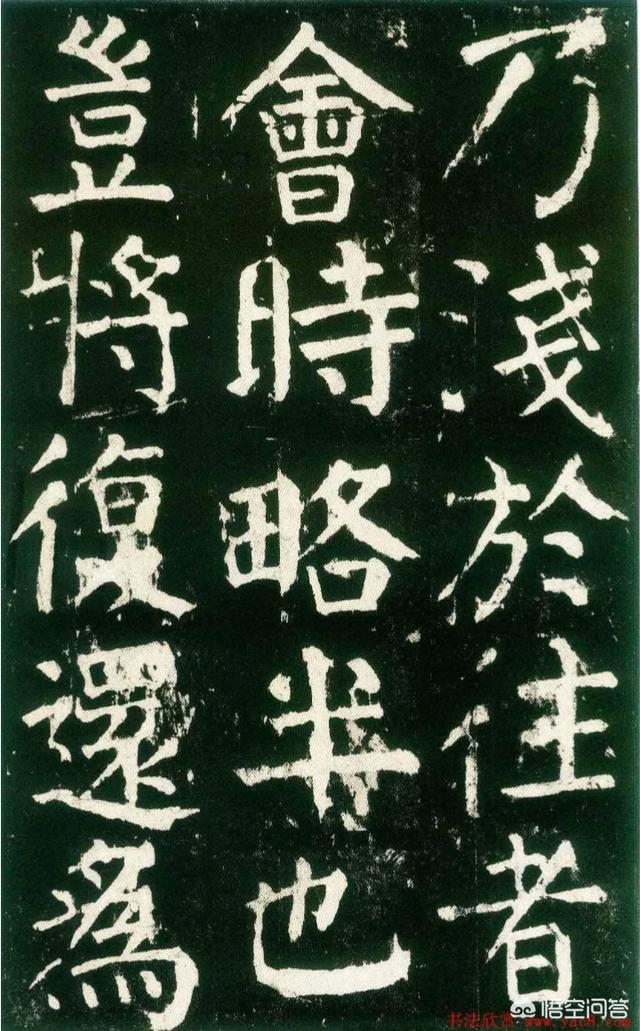 乃淺於往者
會時略半也
豈將復還為
书法欣赏 www.yac8.com
悟空问答